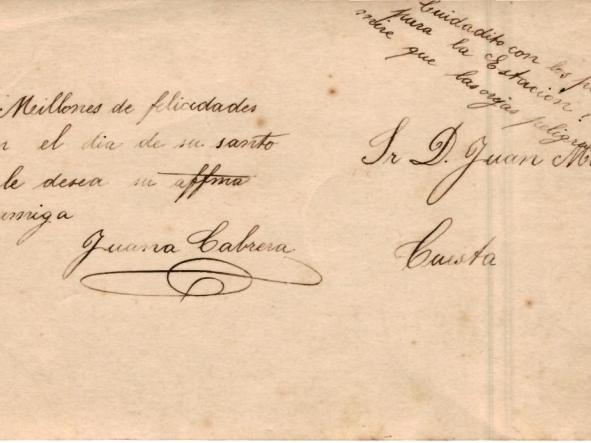 Millones de felicidades
n el dia de su santo
le desea su affma
amiga
Juana Cabrera
Cuidadito con los
para la Estación!
mire que las orejas
Sr D. Juan
Cuesta